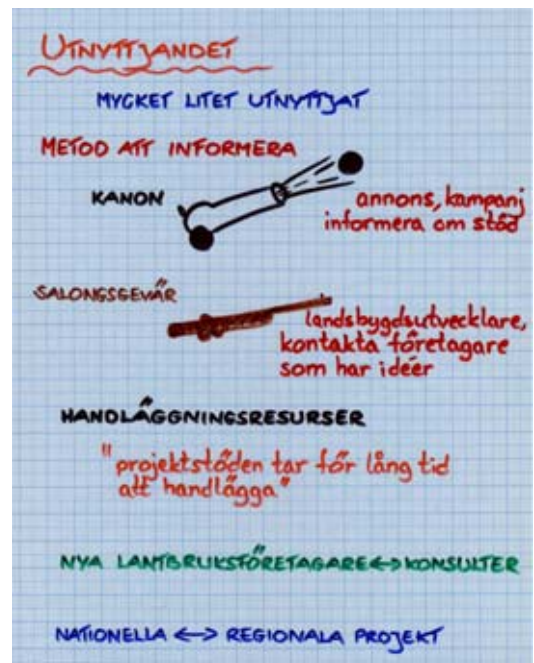 UTNYTTJANDET
MYCKET LITET UTNYTTJAT
METOD ATT INFORMERA
KANON
annons, kampanj
informera om stöd
SALONGSGEVÄR
landsbygdsutvecklare,
kontakta företagare
som har idéer
HANDLÄGGNINGSRESURSER
"projektstöden tar för lång tid
att handlägga"
NYA LANTBRUKSFÖRETAGARE <-> KONSULTER
NATIONELLA <-> REGIONALA PROJEKT